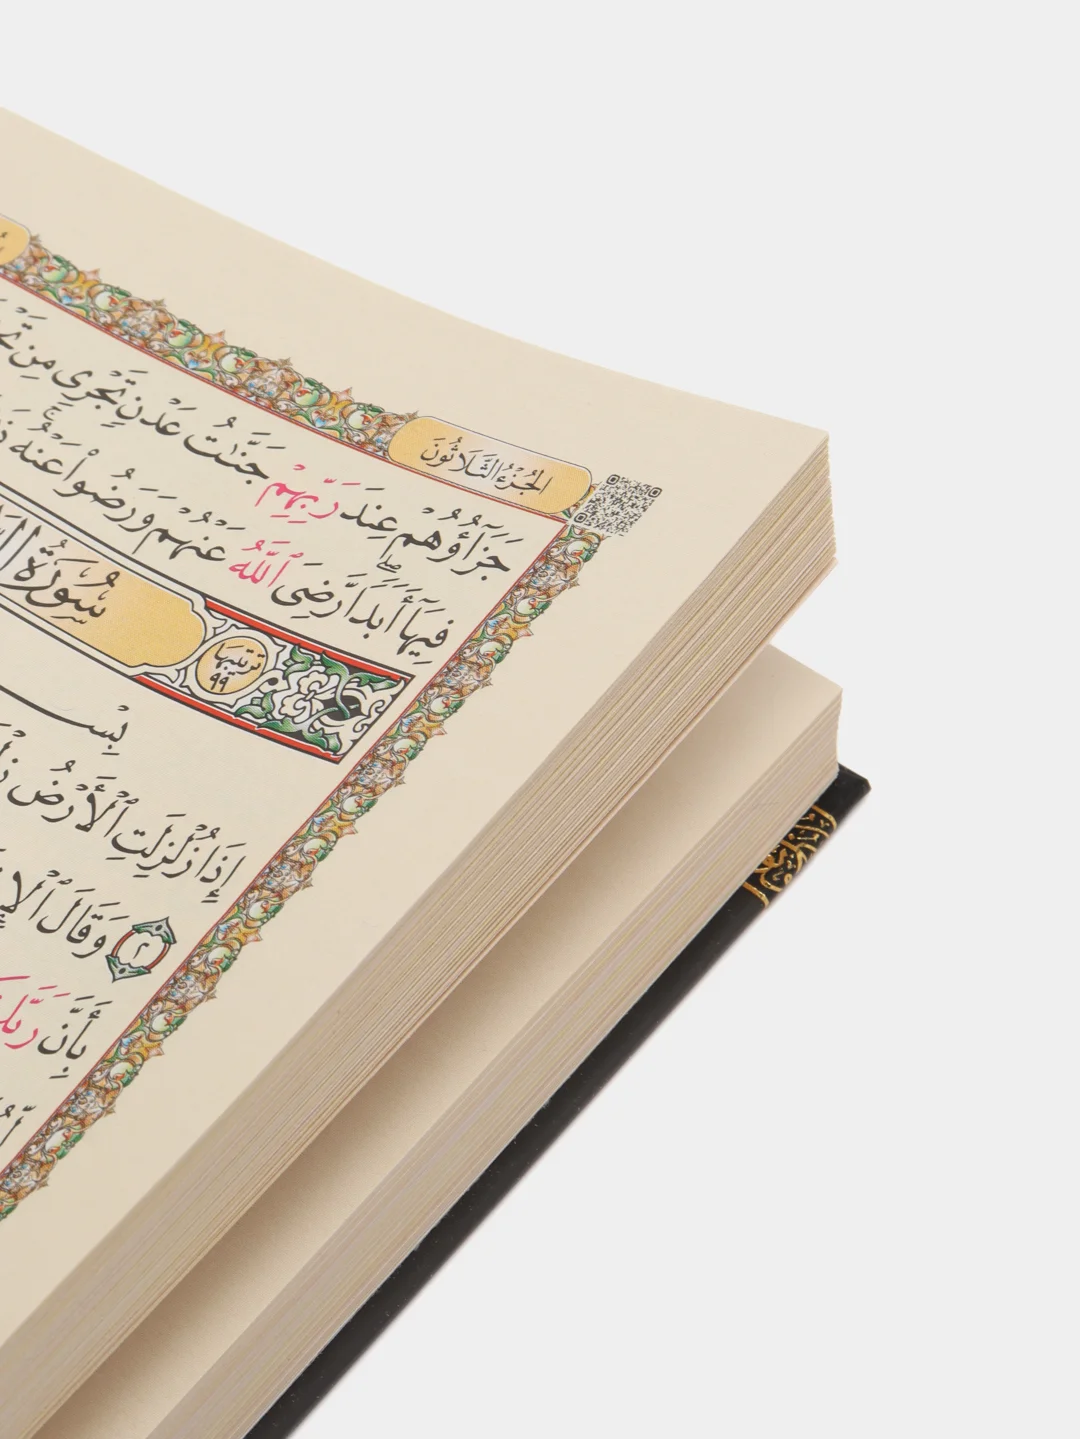 الجُزْءُ الثَّلَاثُونَ
جَزَآؤُهُمْ عِندَ رَبِّهِمْ جَنَّٰتُ عَدْنٍ تَجْرِى مِن
فِيهَآ أَبَدًا ۖ رَّضِىَ ٱللَّهُ عَنْهُمْ وَرَضُوا۟ عَنْهُ ۚ
سُورَةُ
ترتيبها
٩٩
بِسْ
إِذَا زُلْزِلَتِ ٱلْأَرْضُ
٢ وَقَالَ
بِأَنَّ رَبَّكَ